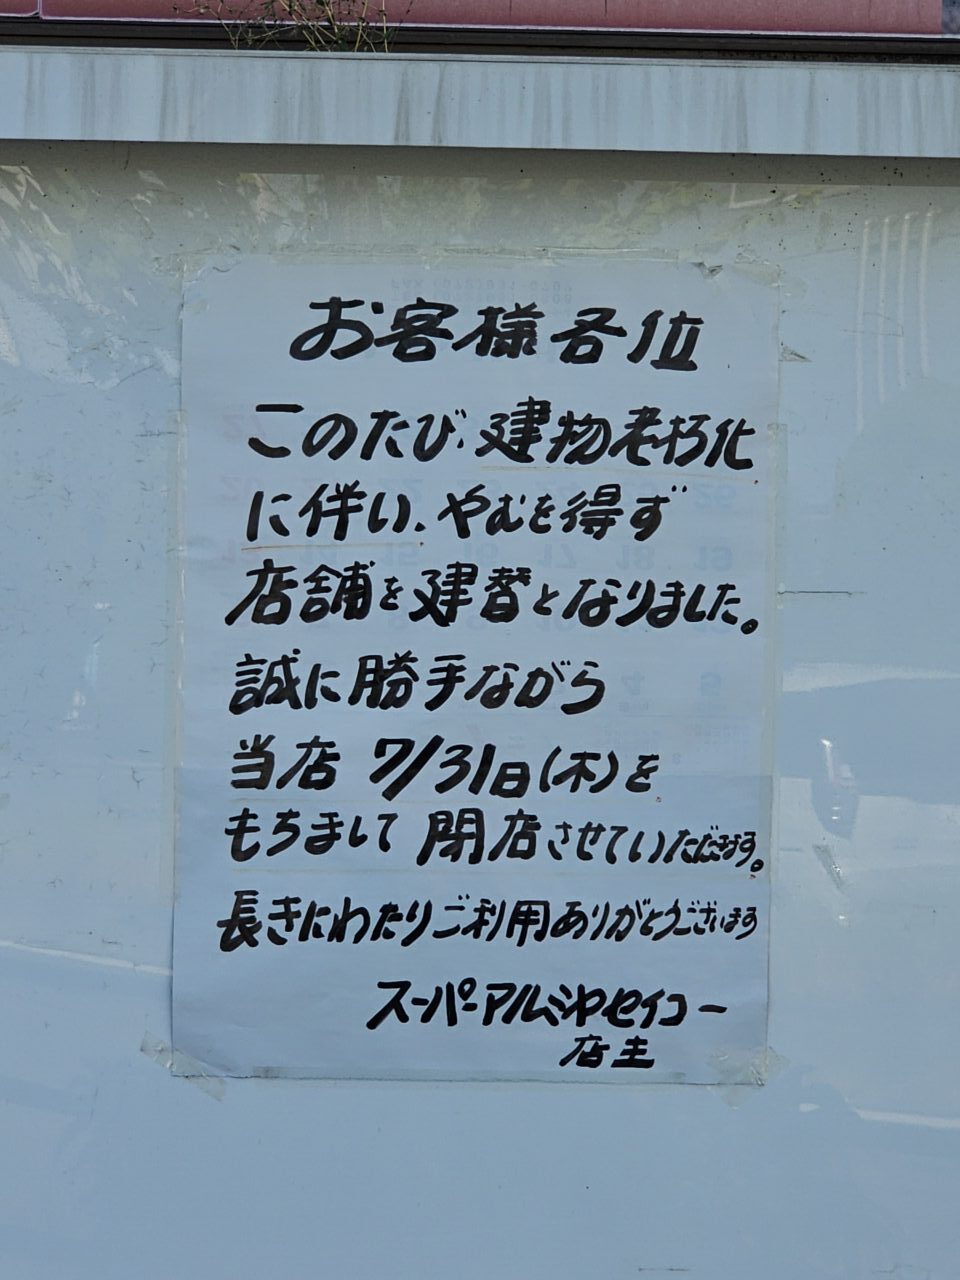 お客様各位
このたび、建物老朽化
に伴い、やむを得ず
店舗を建替となりました。
誠に勝手ながら
当店 7/31日(木)を
もちまして閉店させていただきます。
長きにわたりご利用ありがとうございます
スーパーアルミヤセイコー
店主